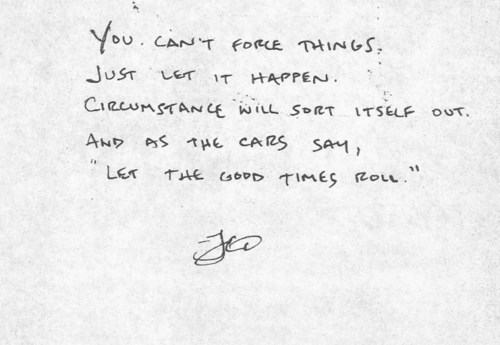 YOU CAN'T FORCE THINGS.
JUST LET IT HAPPEN.
CIRCUMSTANCE WILL SORT ITSELF OUT.
AND AS THE CARS SAY,
"LET THE GOOD TIMES ROLL."